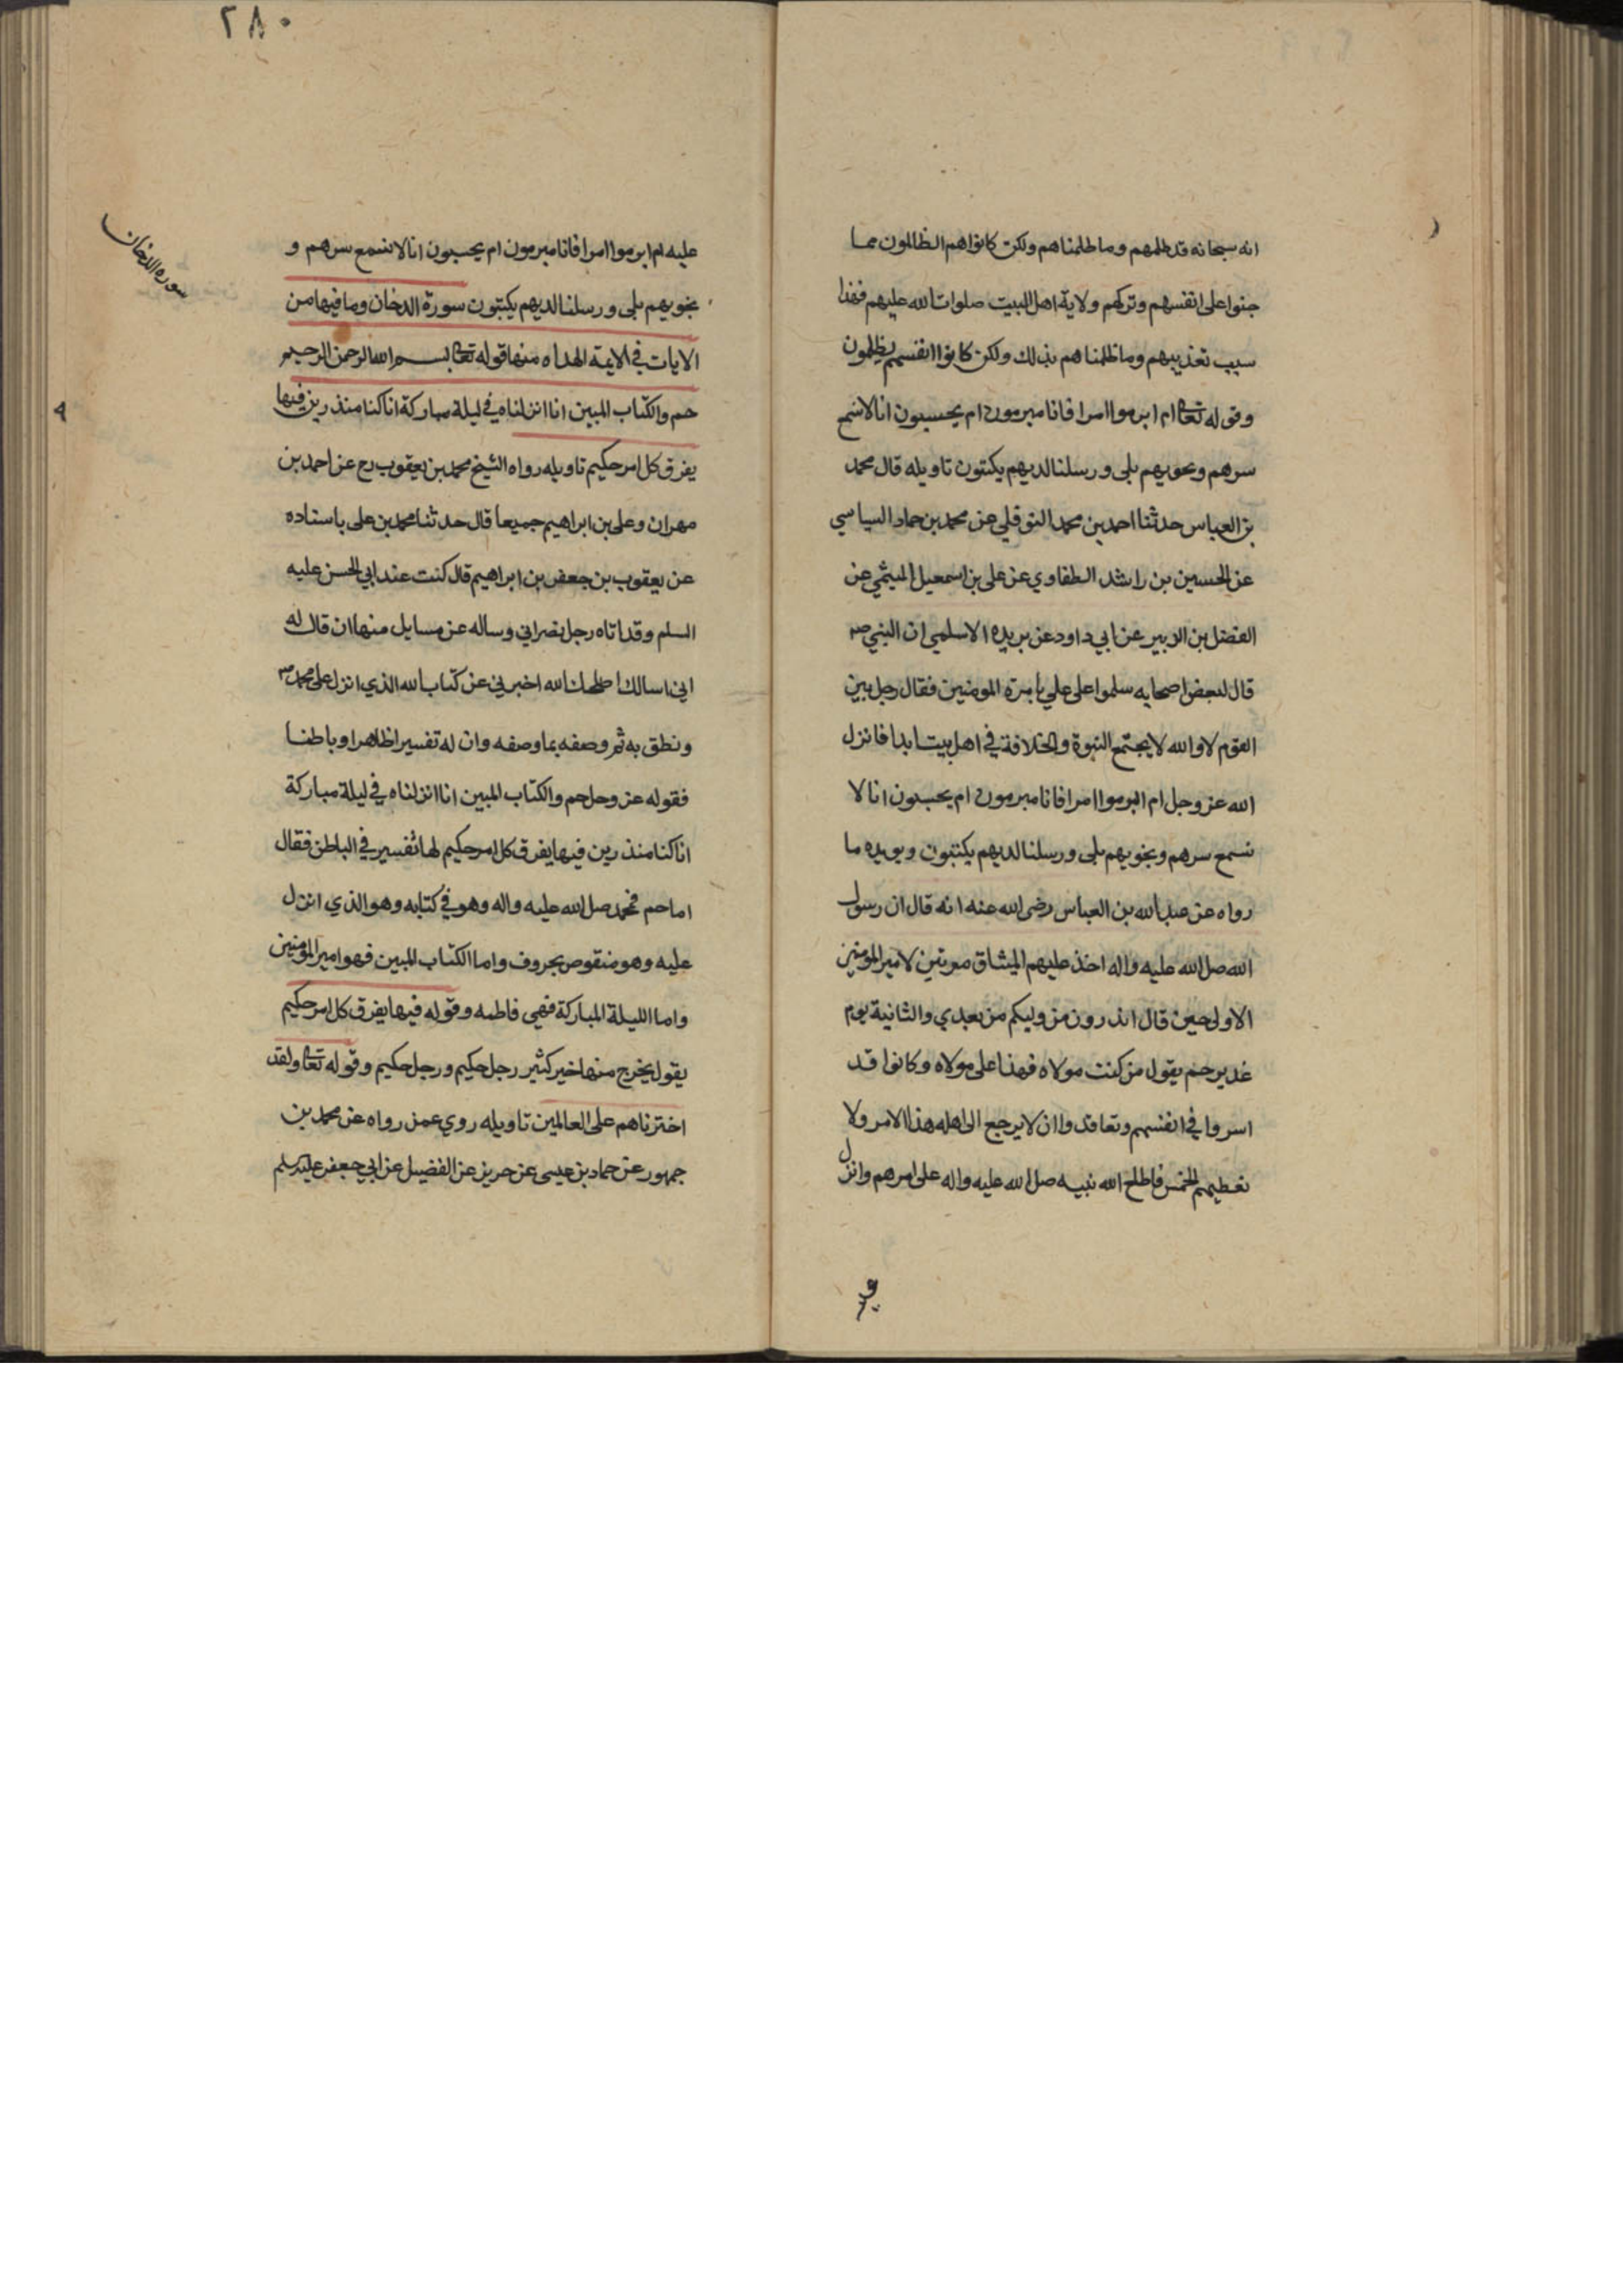 انه سبحانه قد ظلمهم وما ظلمناهم ولكن كانوا هم الظالمون مما
جنوا على انفسهم وتركهم ولاية اهل البيت صلوات الله عليهم فهذا
سبب تعذيبهم وما ظلمناهم بذلك ولكن كانوا انفسهم يظلمون
وقوله تعالى ام ابرموا امرا فانا مبرمون ام يحسبون انا لا نسمع
سرهم ونجويهم بلى ورسلنا لديهم يكتبون تاويله قال محمد
بن العباس حدثنا احمد بن محمد النوفلي عن محمد بن حماد السياسي
عن الحسين بن راشد الطفاوي عن علي بن اسمعيل الميثمي عن
الفضل بن الزبير عن ابي داود عن بريده الاسلمي ان النبي ص
قال لبعض اصحابه سلموا على علي بامرة المومنين فقال رجل بين
القوم لا والله لا يجتمع النبوة والخلافة في اهل بيت ابدا فانزل
الله عز وجل ام ابرموا امرا فانا مبرمون ام يحسبون انا لا
نسمع سرهم ونجويهم بلى ورسلنا لديهم يكتبون ويويده ما
رواه عن عبد الله بن العباس رضى الله عنه انه قال ان رسول
الله صل الله عليه واله اخذ عليهم الميثاق مرتين لامير المومنين
الاولى حين قال اتدرون من وليكم من بعدي والثانية يوم
غدير خم يقول من كنت مولاه فهذا على مولاه وكانوا قد
اسروا في انفسهم وتعاقدوا ان لا يرجع الى اهله هذا الامر ولا
نعطيهم الخمس فاطلع الله نبيه صل الله عليه واله على امرهم وانزل
٢٨٠
سورة الدخان
عليه ام ابرموا امرا فانا مبرمون ام يحسبون انا لا نسمع سرهم و
نجويهم بلى ورسلنا لديهم يكتبون سورة الدخان وما فيها من
الايات في الايمة الهداه منها قوله تعالى بسم الله الرحمن الرحيم
حم والكتاب المبين انا انزلناه في ليلة مباركة انا كنا منذرين فيها
يفرق كل امر حكيم تاويله رواه الشيخ محمد بن يعقوب رح عن احمد بن
مهران وعلى بن ابراهيم جميعا قال حدثنا محمد بن على باسناده
عن يعقوب بن جعفر بن ابراهيم قال كنت عند ابي الحسن عليه
السلم وقد اتاه رجل نصراني وساله عن مسايل منها ان قال له
اني اسالك اصلحك الله اخبرني عن كتاب الله الذي انزل على محمد ص
ونطق به ثم وصفه بما وصفه وان له تفسيرا ظاهرا وباطنا
فقوله عز وجل حم والكتاب المبين انا انزلناه في ليلة مباركة
انا كنا منذرين فيها يفرق كل امر حكيم لها تفسير في الباطن فقال
اما حم فمحمد صل الله عليه واله وهو في كتابه وهو الذي انزل
عليه وهو منقوص بحروف واما الكتاب المبين فهو امير المومنين
واما الليلة المباركة فهي فاطمه وقوله فيها يفرق كل امر حكيم
يقول يخرج منها خير كثير رجل حكيم ورجل حكيم وقوله تعالى ولقد
اخترناهم على العالمين تاويله روي عمن رواه عن محمد بن
جمهور عن حماد بن عيسى عن حريز عن الفضيل عن ابي جعفر عليه السلم